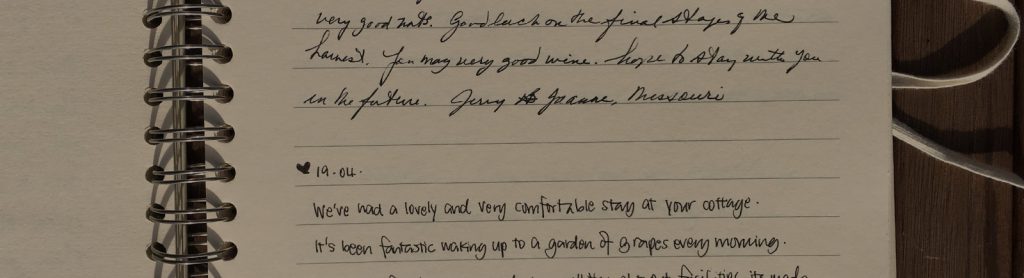 very good hosts. Good luck on the final stages of the
harvest. You may very good wine. Hope to stay with you
in the future. Jerry & Joanne, Missouri
♥ 19.04.
We've had a lovely and very comfortable stay at your cottage.
It's been fantastic waking up to a garden of grapes every morning.